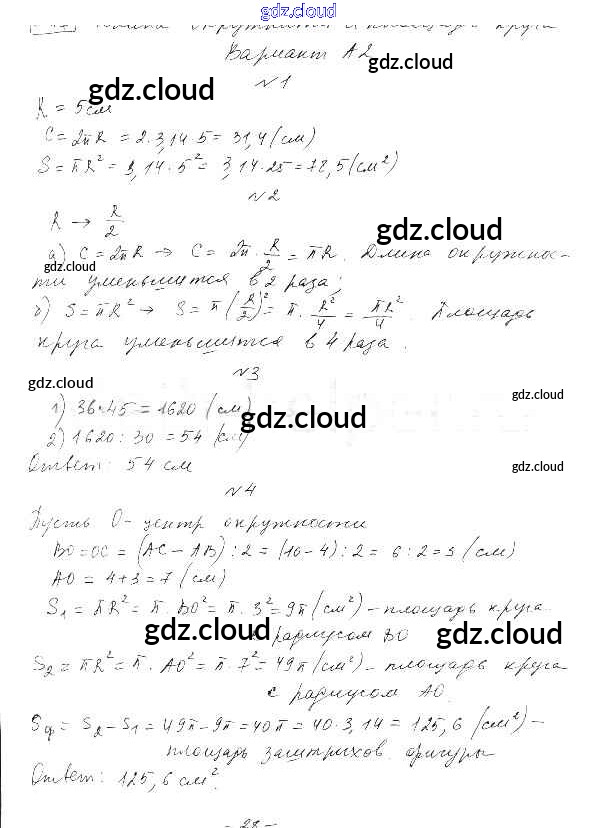 gdz.cloud
Длина окружности и площадь круга
Вариант А2
gdz.cloud
№1
gdz.cloud
R = 5см
C = 2πR = 2·3,14·5 = 31,4 (см)
S = πR² = 3,14·5² = 3,14·25 = 78,5 (см²)
№2
R → R/2
gdz.cloud
а) C = 2πR → C = 2π·R/2 = πR. Длина окружнос-
gdz.cloud
ти уменьшится в 2 раза;
б) S = πR² → S = π(R/2)² = π·R²/4 = πR²/4. Площадь
круга уменьшится в 4 раза.
№3
gdz.cloud
gdz.cloud
1) 36·45 = 1620 (см)
gdz.cloud
2) 1620 : 30 = 54 (см)
Ответ: 54 см
gdz.cloud
№4
Пусть О - центр окружности
BO = OC = (AC - AB) : 2 = (10 - 4) : 2 = 6 : 2 = 3 (см)
AO = 4 + 3 = 7 (см)
S₁ = πR² = π·BO² = π·3² = 9π (см²) - площадь круга
gdz.cloud
с радиусом BO
gdz.cloud
S₂ = πR² = π·AO² = π·7² = 49π (см²) - площадь круга
с радиусом AO.
Sф = S₂ - S₁ = 49π - 9π = 40π = 40·3,14 = 125,6 (см²) -
площадь заштрихов фигуры
Ответ: 125,6 см².
gdz.cloud
gdz.cloud
- 28 -